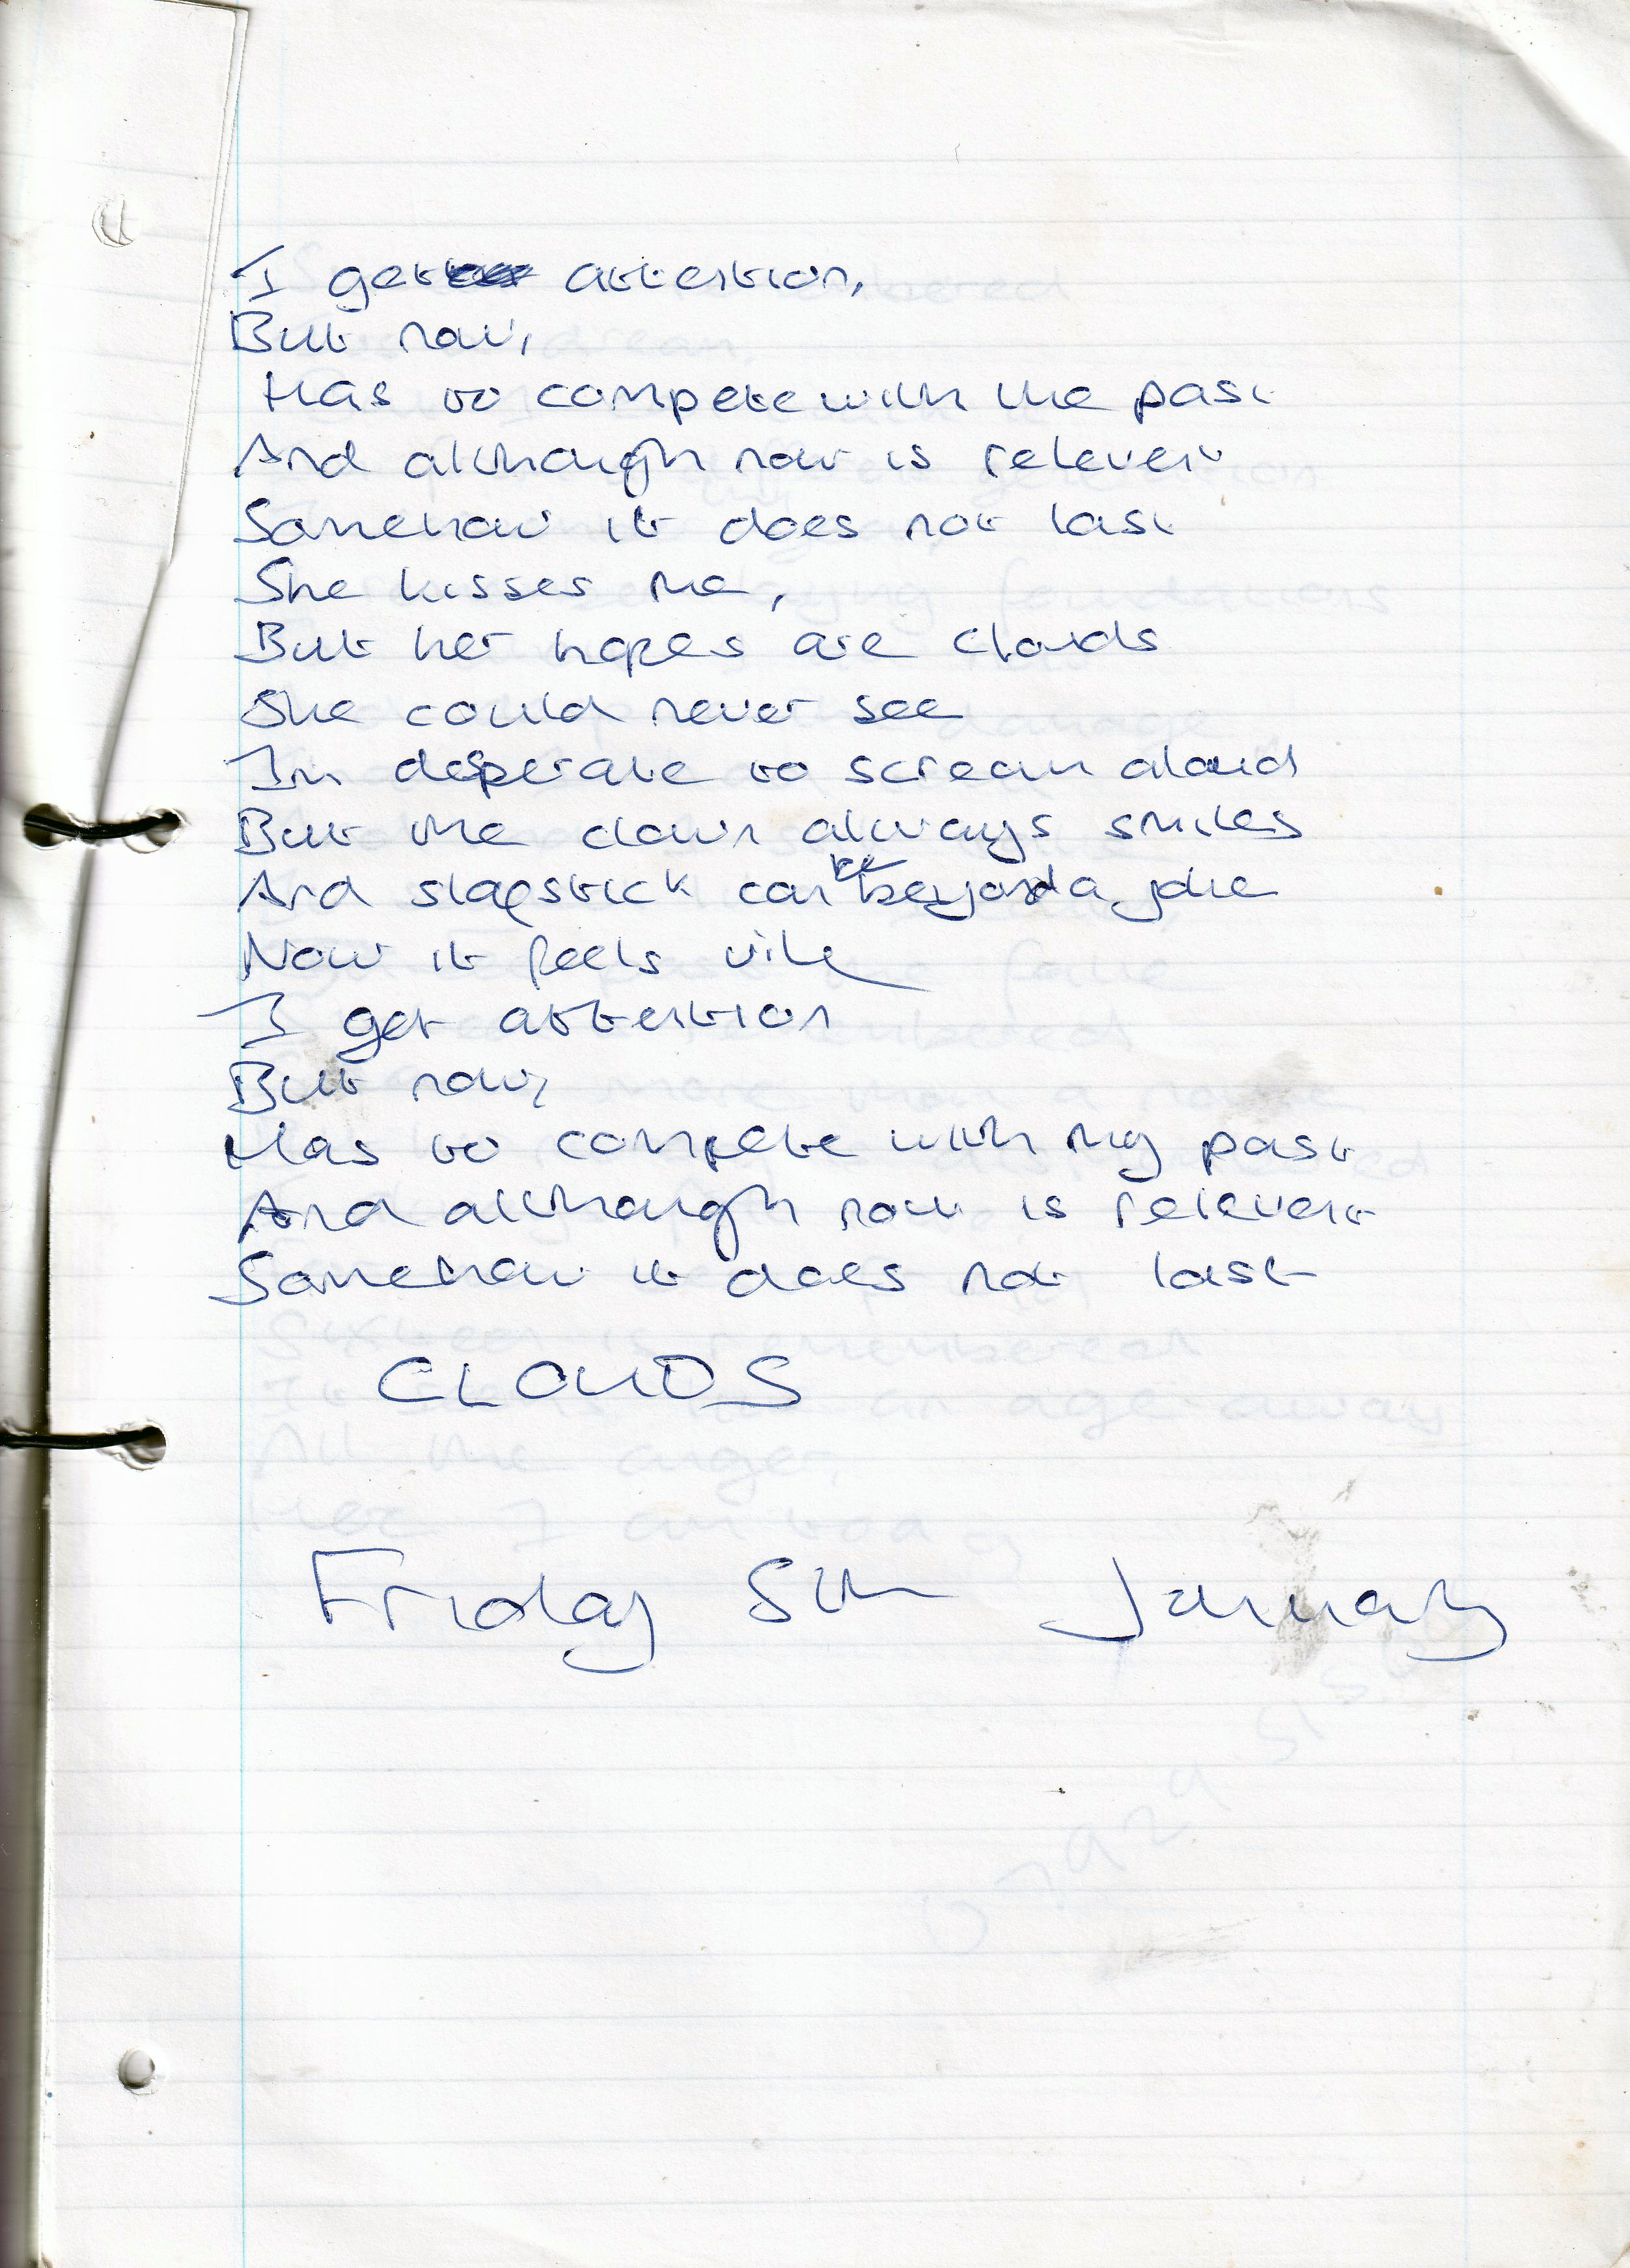 I get attention,
But now,
Has to compete with the past
And although now is relevent
Somehow it does not last
She kisses me,
But her hopes are clouds
She could never see
Im desperate to scream aloud
But the clown always smiles
And slapstick can be beyond a joke
Now it feels vile
I get attention
But now,
Has to compete with my past
And although now is relevent
Somehow it does not last
CLOUDS
Friday 5th January